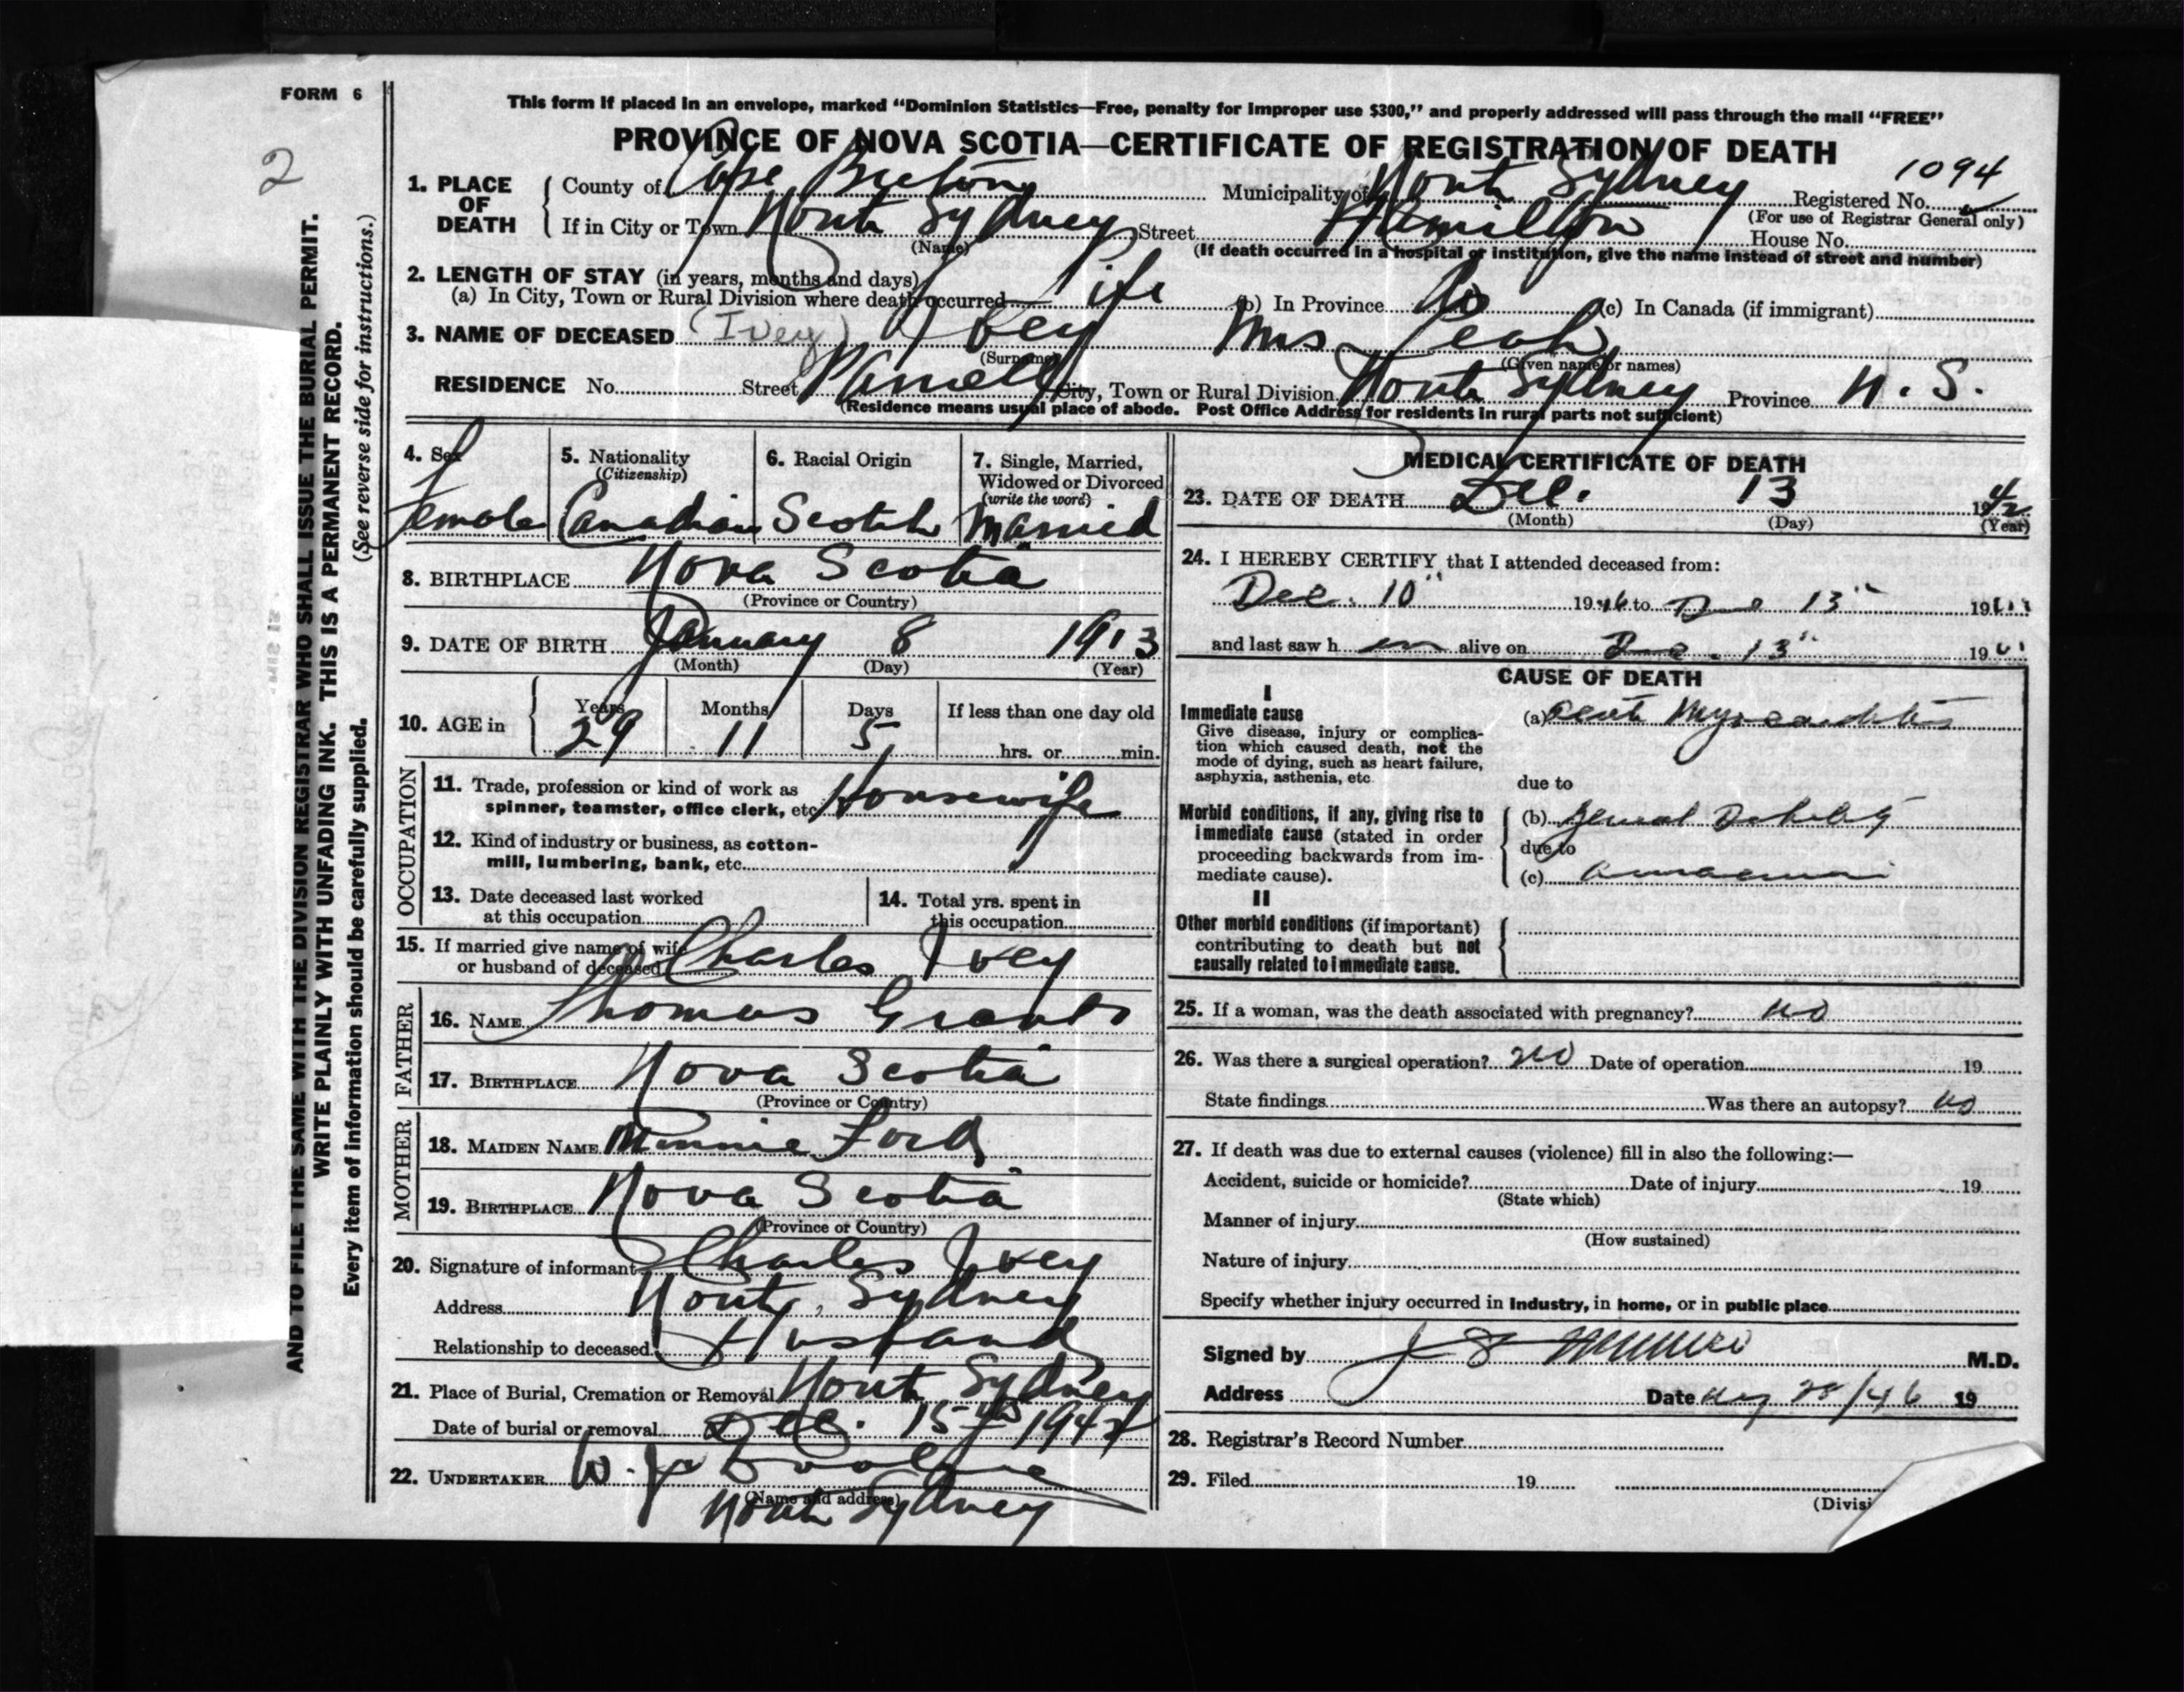 FORM 6
2
This form if placed in an envelope, marked “Dominion Statistics—Free, penalty for improper use $300,” and properly addressed will pass through the mail “FREE”
PROVINCE OF NOVA SCOTIA—CERTIFICATE OF REGISTRATION OF DEATH
1094
1. PLACE OF DEATH
County of Cape Breton Municipality of North Sydney Registered No.
(For use of Registrar General only)
If in City or Town North Sydney Street Hamilton House No.
(Name) (If death occurred in a hospital or institution, give the name instead of street and number)
2. LENGTH OF STAY (in years, months and days)
(a) In City, Town or Rural Division where death occurred Life (b) In Province Do (c) In Canada (if immigrant)
3. NAME OF DECEASED (Ivey) Ivey Mrs Leah
(Surname) (Given name or names)
RESIDENCE No. Street City, Town or Rural Division North Sydney Province N. S.
(Residence means usual place of abode. Post Office Address for residents in rural parts not sufficient)
4. Sex Female
5. Nationality (Citizenship) Canadian
6. Racial Origin Scotch
7. Single, Married, Widowed or Divorced (write the word) Married
8. BIRTHPLACE Nova Scotia
(Province or Country)
9. DATE OF BIRTH January 8 1913
(Month) (Day) (Year)
10. AGE in Years 29 Months 11 Days 5 If less than one day old
hrs. or min.
OCCUPATION
11. Trade, profession or kind of work as
spinner, teamster, office clerk, etc. Housewife
12. Kind of industry or business, as cotton-
mill, lumbering, bank, etc.
13. Date deceased last worked
at this occupation
14. Total yrs. spent in
this occupation
15. If married give name of wife
or husband of deceased Charles Ivey
FATHER
16. NAME Thomas Grant
17. BIRTHPLACE Nova Scotia
(Province or Country)
MOTHER
18. MAIDEN NAME Minnie Ford
19. BIRTHPLACE Nova Scotia
(Province or Country)
20. Signature of informant Charles Ivey
Address North Sydney
Relationship to deceased Husband
21. Place of Burial, Cremation or Removal North Sydney
Date of burial or removal Dec. 15th 1942
22. UNDERTAKER W.
(Name and address)
North Sydney
MEDICAL CERTIFICATE OF DEATH
23. DATE OF DEATH Dec. 13 1942
(Month) (Day) (Year)
24. I HEREBY CERTIFY that I attended deceased from:
Dec. 10" 19 to Dec 13" 19
and last saw h er alive on Dec. 13" 19
CAUSE OF DEATH
I
Immediate cause
Give disease, injury or complica-
tion which caused death, not the
mode of dying, such as heart failure,
asphyxia, asthenia, etc.
(a) Acute Myocarditis
due to
Morbid conditions, if any, giving rise to
immediate cause (stated in order
proceeding backwards from im-
mediate cause).
(b) General Debility
due to
(c)
II
Other morbid conditions (if important)
contributing to death but not
causally related to immediate cause.
25. If a woman, was the death associated with pregnancy? no
26. Was there a surgical operation? no Date of operation 19
State findings Was there an autopsy? no
27. If death was due to external causes (violence) fill in also the following:—
Accident, suicide or homicide? Date of injury 19
(State which)
Manner of injury
(How sustained)
Nature of injury
Specify whether injury occurred in industry, in home, or in public place
Signed by M.D.
Address Date 28/46 19
28. Registrar's Record Number
29. Filed 19
(Divisi
AND TO FILE THE SAME WITH THE DIVISION REGISTRAR WHO SHALL ISSUE THE BURIAL PERMIT.
WRITE PLAINLY WITH UNFADING INK. THIS IS A PERMANENT RECORD.
Every item of information should be carefully supplied. (See reverse side for instructions.)